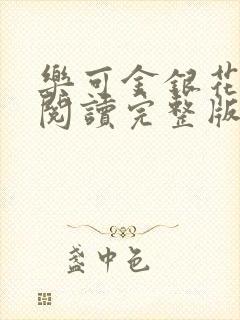 樂可金銀花
閱讀完整版
盞中色